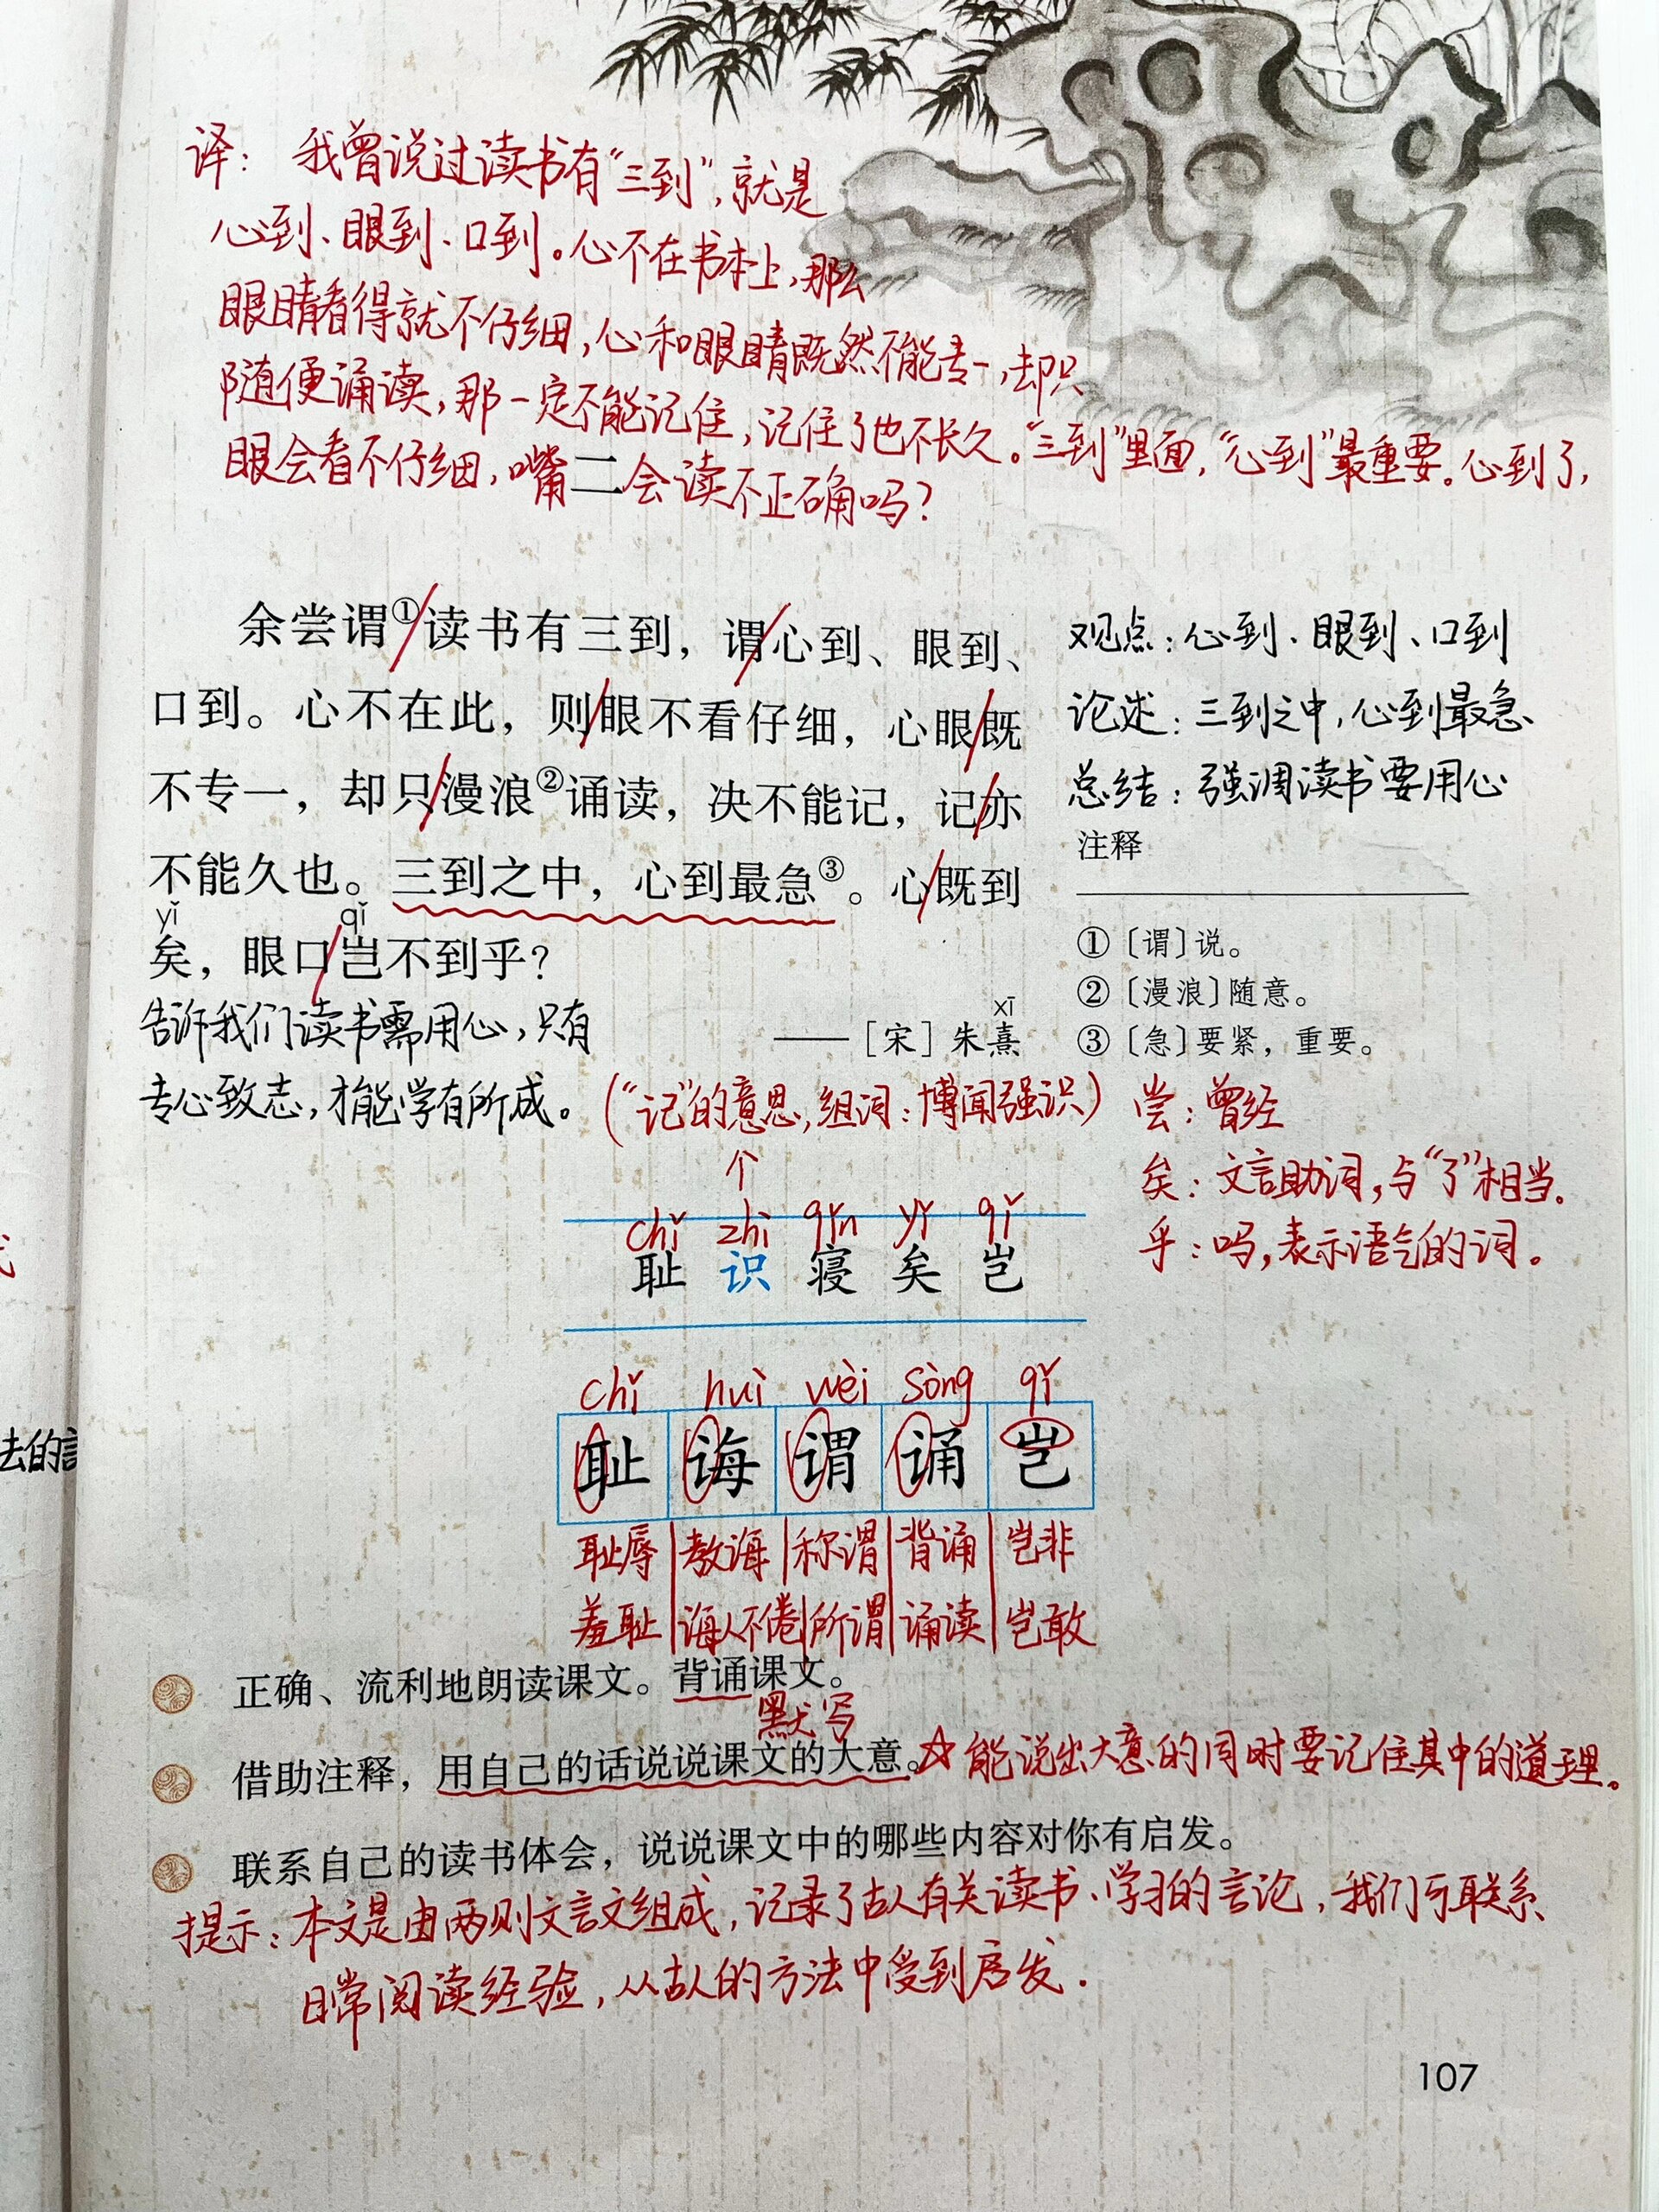 译：我曾说过读书有“三到”，就是
心到、眼到、口到。心不在书本上，那么
眼睛看得就不仔细，心和眼睛既然不能专一，却只
随便诵读，那一定不能记住，记住了也不长久。“三到”里面，“心到”最重要。心到了，
眼会看不仔细，嘴二会读不正确吗？
余尝谓①读书有三到，谓心到、眼到、
口到。心不在此，则眼不看仔细，心眼既
不专一，却只漫浪②诵读，决不能记，记亦
不能久也。三到之中，心到最急③。心既到
yǐ qǐ
矣，眼口岂不到乎？
xī
——［宋］朱熹
观点：心到、眼到、口到
论述：三到之中，心到最急
总结：强调读书要用心
注释
①〔谓〕说。
②〔漫浪〕随意。
③〔急〕要紧，重要。
告诉我们读书需用心，只有
专心致志，才能学有所成。
（“记”的意思，组词：博闻强识）
尝：曾经
矣：文言助词，与“了”相当。
乎：吗，表示语气的词。
chǐ zhì qǐn yǐ qǐ
耻 识 寝 矣 岂
chǐ huì wèi sòng qǐ
耻 诲 谓 诵 岂
耻辱 教诲 称谓 背诵 岂非
羞耻 诲人不倦 所谓 诵读 岂敢
正确、流利地朗读课文。背诵课文。
默写
借助注释，用自己的话说说课文的大意。☆能说出大意的同时要记住其中的道理。
联系自己的读书体会，说说课文中的哪些内容对你有启发。
提示：本文是由两则文言文组成，记录了古人有关读书、学习的言论，我们可联系
日常阅读经验，从古人的方法中受到启发．
去的言
107